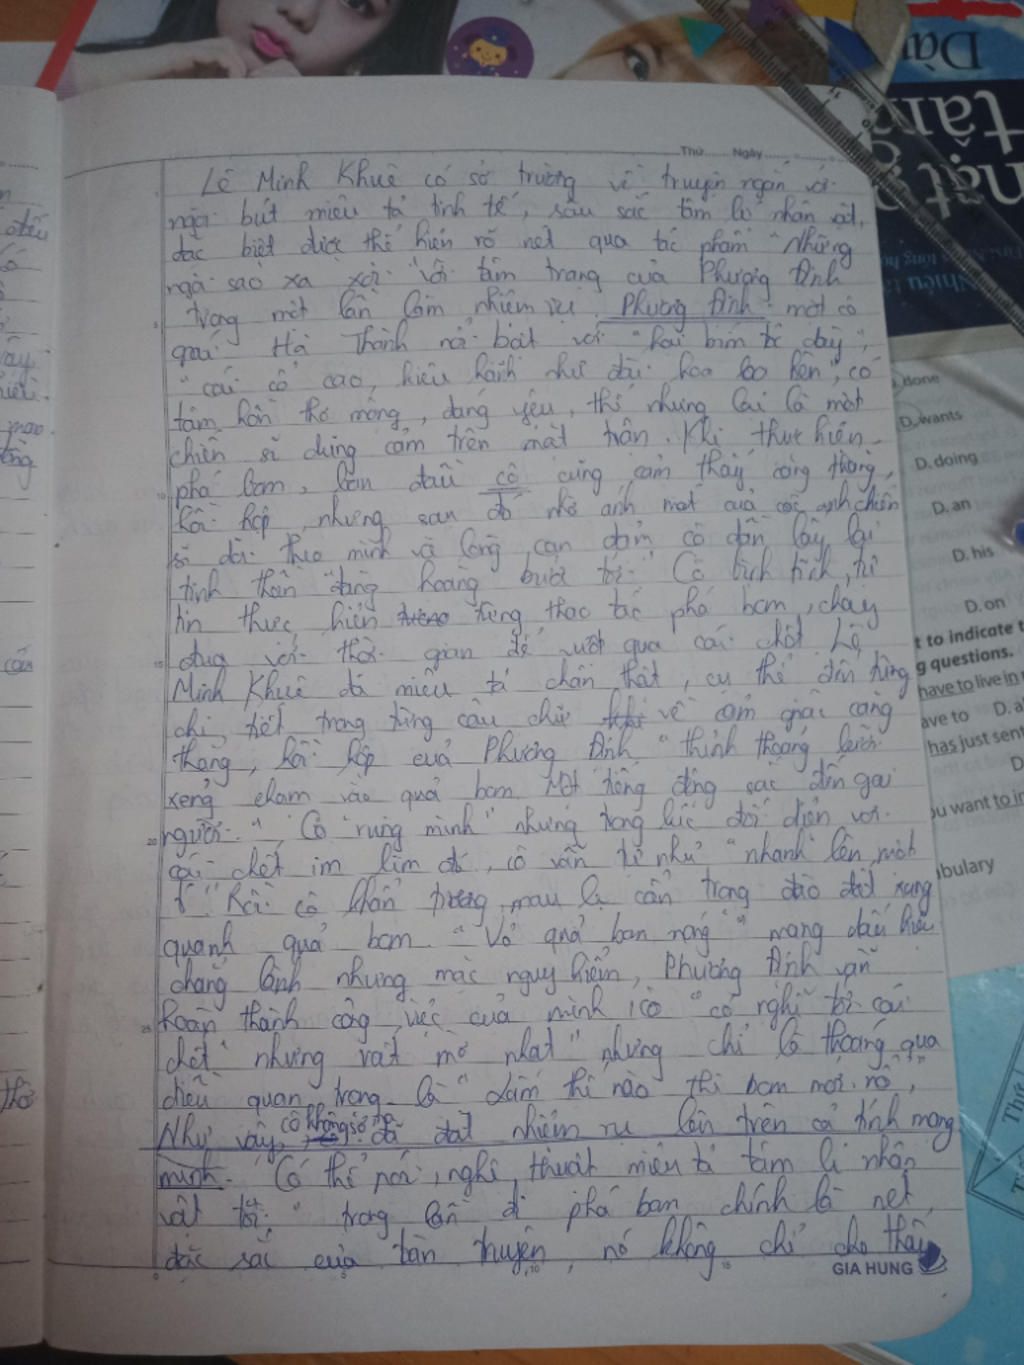 Thứ Ngày
Lê Minh Khuê có sở trường về truyện ngắn với
ngòi bút miêu tả tinh tế, sâu sắc tâm lí nhân vật,
đặc biệt được thể hiện rõ nét qua tác phẩm "Những
ngôi sao xa xôi" với tâm trạng của Phương Định
trong một lần làm nhiệm vụ. Phương Định một cô
gái Hà Thành nổi bật với "hai bím tóc dày",
"cái cổ cao, kiêu hãnh như đài hoa loa kèn", có
tâm hồn thơ mộng, đáng yêu, thế nhưng lại là một
chiến sĩ dũng cảm trên mặt trận. Khi thực hiện
phá bom, ban đầu cô cũng cảm thấy căng thẳng,
hồi hộp, nhưng sau đó nhờ ánh mắt của các anh chiến
sĩ dõi theo mình và lòng can đảm cô dần lấy lại
tinh thần "đàng hoàng bước tới" Cô bình tĩnh, tự
tin thực hiện từng thao tác phá bom, chạy
đua với thời gian để vượt qua cái chết. Lê
Minh Khuê đã miêu tả chân thật, cụ thể đến từng
chi tiết trong từng câu chữ về cảm giác căng
thẳng, hồi hộp của Phương Định "thỉnh thoảng lưỡi
xẻng chạm vào quả bom. Một tiếng động sắc đến gai
người." Cô "rùng mình" nhưng trong lúc đối diện với
cái chết im lìm đó, cô vẫn tự nhủ "nhanh lên, một
tí" Rồi cô khẩn trương mau lẹ cẩn trọng đào đất xung
quanh quả bom. "Vỏ quả bom nóng" mang dấu hiệu
chẳng lành nhưng mặc nguy hiểm, Phương Định vẫn
hoàn thành công việc của mình, cô "có nghĩ tới cái
chết" nhưng rất "mờ nhạt" nhưng chỉ là thoáng qua
điều quan trọng là "làm thế nào thì bom mới nổ",
Như vậy, cô không sợ mà đã đặt nhiệm vụ lên trên cả tính mạng
mình. Có thể nói, nghệ thuật miêu tả tâm lí nhân
vật "tôi" trong lần đi phá bom chính là nét
đặc sắc của toàn truyện, nó không chỉ cho thấy
GIA HUNG
done
D. wants
D. doing
D. an
D. his
D. on
t to indicate t
g questions.
have to live in
ave to
has just sent
ou want to in
bulary